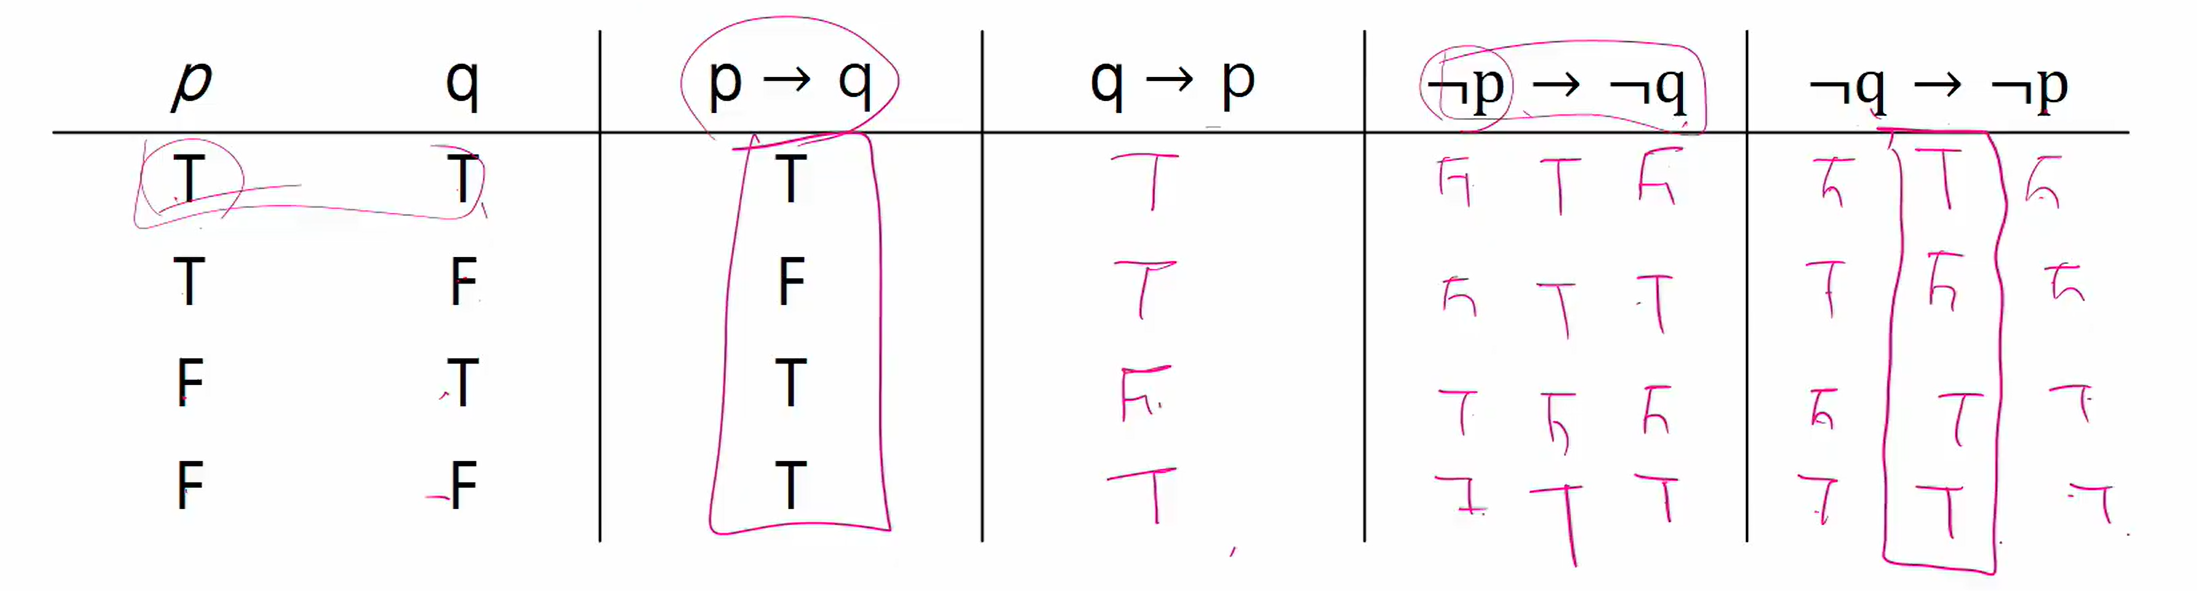 p q p → q q → p ¬p → ¬q ¬q → ¬p
T T T T F T F F T F
T F F T F T T T F F
F T T F T F F F T T
F F T T T T T T T T